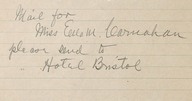 Mail for
Miss Eva M. Carnahan
please send to
Hotel Bristol